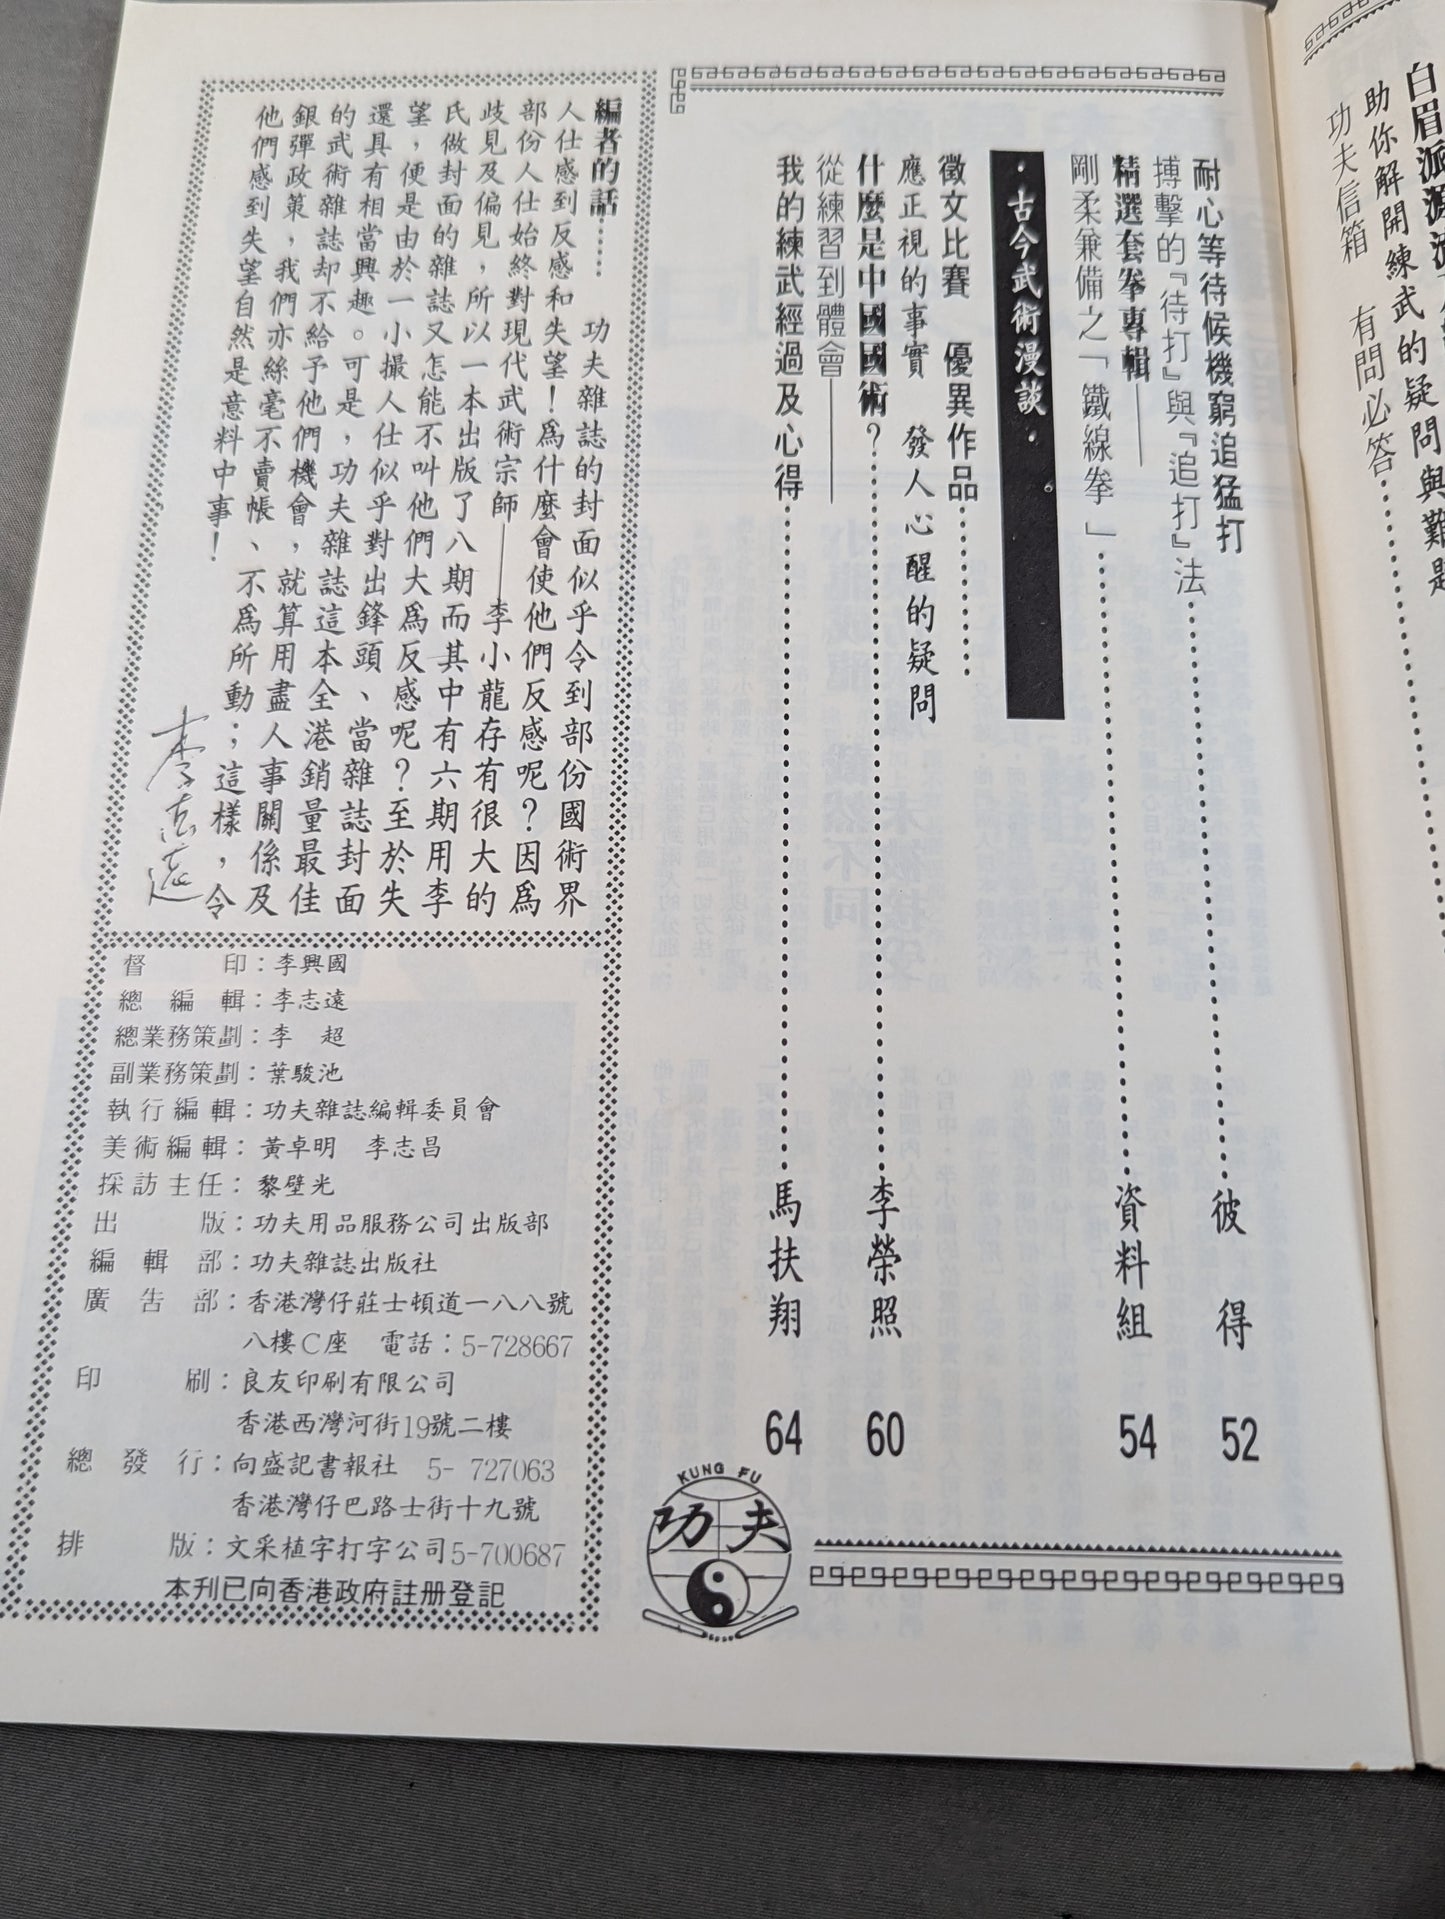 助你解開練武的疑問與難題
功夫信箱　有問必答
耐心等待候機窮追猛打
搏擊的『待打』與『追打』法……彼　得　52
精選套拳專輯——
剛柔兼備之「鐵線拳」……資料組　54
·古今武術漫談·
徵文比賽　優異作品……
應正視的事實　發人心醒的疑問
什麼是中國國術？……李榮照　60
從練習到體會——
我的練武經過及心得……馬扶翔　64
KUNG FU
功夫
編者的話……
功夫雜誌的封面似乎令到部份國術界
人仕感到反感和失望！爲什麼會使他們反感呢？因爲
部份人仕始終對現代武術宗師——李小龍存有很大的
歧見及偏見，所以一本出版了八期而其中有六期用李
氏做封面的雜誌又怎能不叫他們大爲反感呢？至於失
望，便是由於一小撮人仕似乎對出鋒頭、當雜誌封面
還具有相當興趣。可是，功夫雜誌這本全港銷量最佳
的武術雜誌却不給予他們機會，就算用盡人事關係及
銀彈政策，我們亦絲毫不賣帳、不爲所動；這樣，令
他們感到失望自然是意料中事！
李志遠
督印：李興國
總編輯：李志遠
總業務策劃：李　超
副業務策劃：葉駿池
執行編輯：功夫雜誌編輯委員會
美術編輯：黃卓明　李志昌
採訪主任：黎壁光
出版：功夫用品服務公司出版部
編輯部：功夫雜誌出版社
廣告部：香港灣仔莊士頓道一八八號
八樓C座　電話：5-728667
印刷：良友印刷有限公司
香港西灣河街19號二樓
總發行：向盛記書報社　5-727063
香港灣仔巴路士街十九號
排版：文采植字打字公司5-700687
本刊已向香港政府註册登記